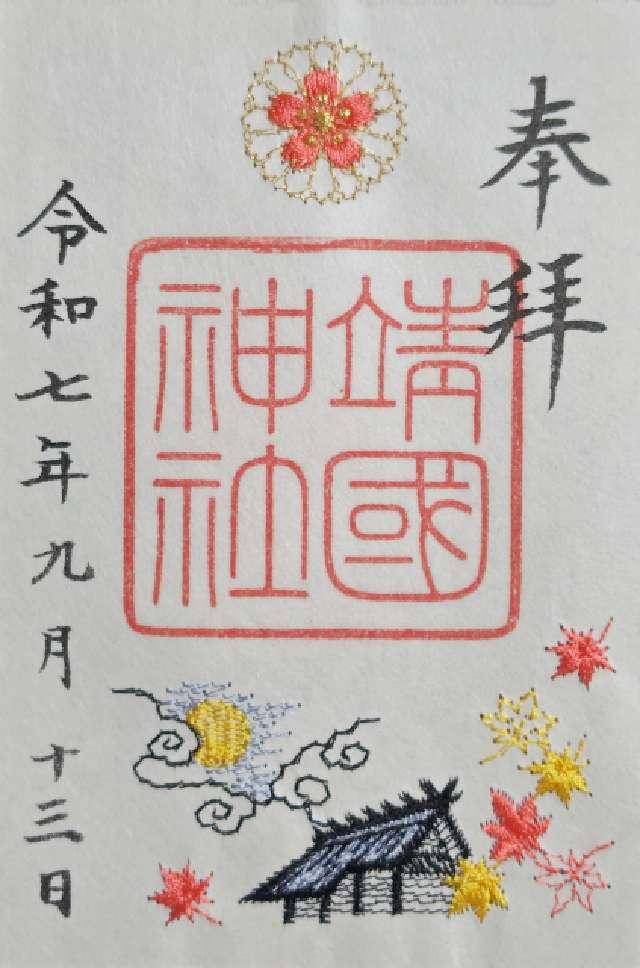 奉拝
靖國
神社
令和七年九月十三日